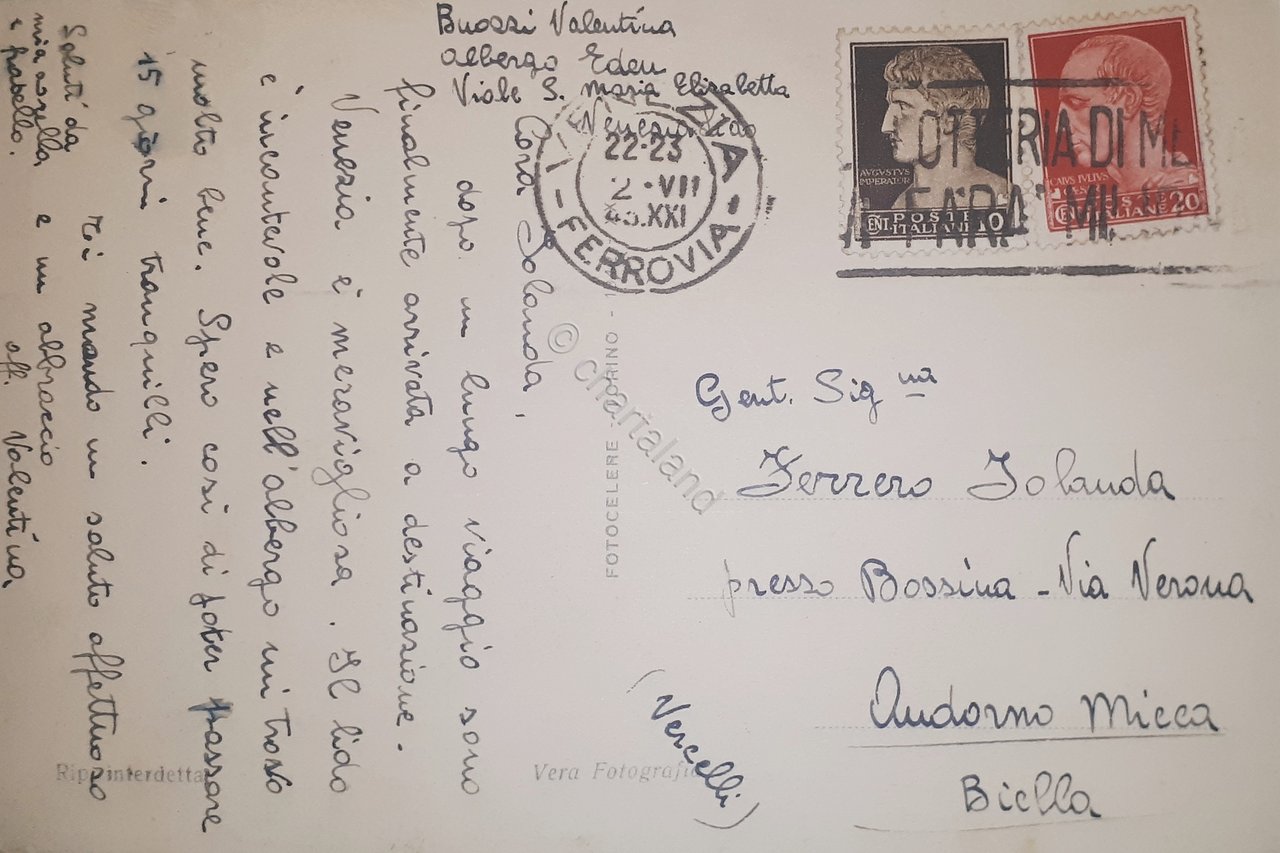 Buossi Valentina
albergo Eden
Viale S. Maria Elisabetta
Venezia Lido
Cara Jolanda,
dopo un lungo viaggio sono
finalmente arrivata a destinazione.
Venezia è meravigliosa. Il lido
è incantevole e nell'albergo mi trovo
molto bene. Spero così di poter passare
15 giorni tranquilli.
Ti mando un saluto affettuoso
e un abbraccio
aff. Valentina
Saluti da
mia sorella
e fratello.
22-23
2·VII
43.XXI
FERROVIA
AVGVSTVS
IMPERATOR
CENT. POSTE 10
ITALIANE
CAIVS IVLIVS
CENT. ITALIANE 20
LOTTERIA DI ME
FARA' MIL
FOTOCELERE - TORINO -
© chartaland
Gent. Sig na
Ferrero Jolanda
presso Bossina - Via Verona
Andorno Micca
Biella
(Vercelli)
Rip. interdetta
Vera Fotografia